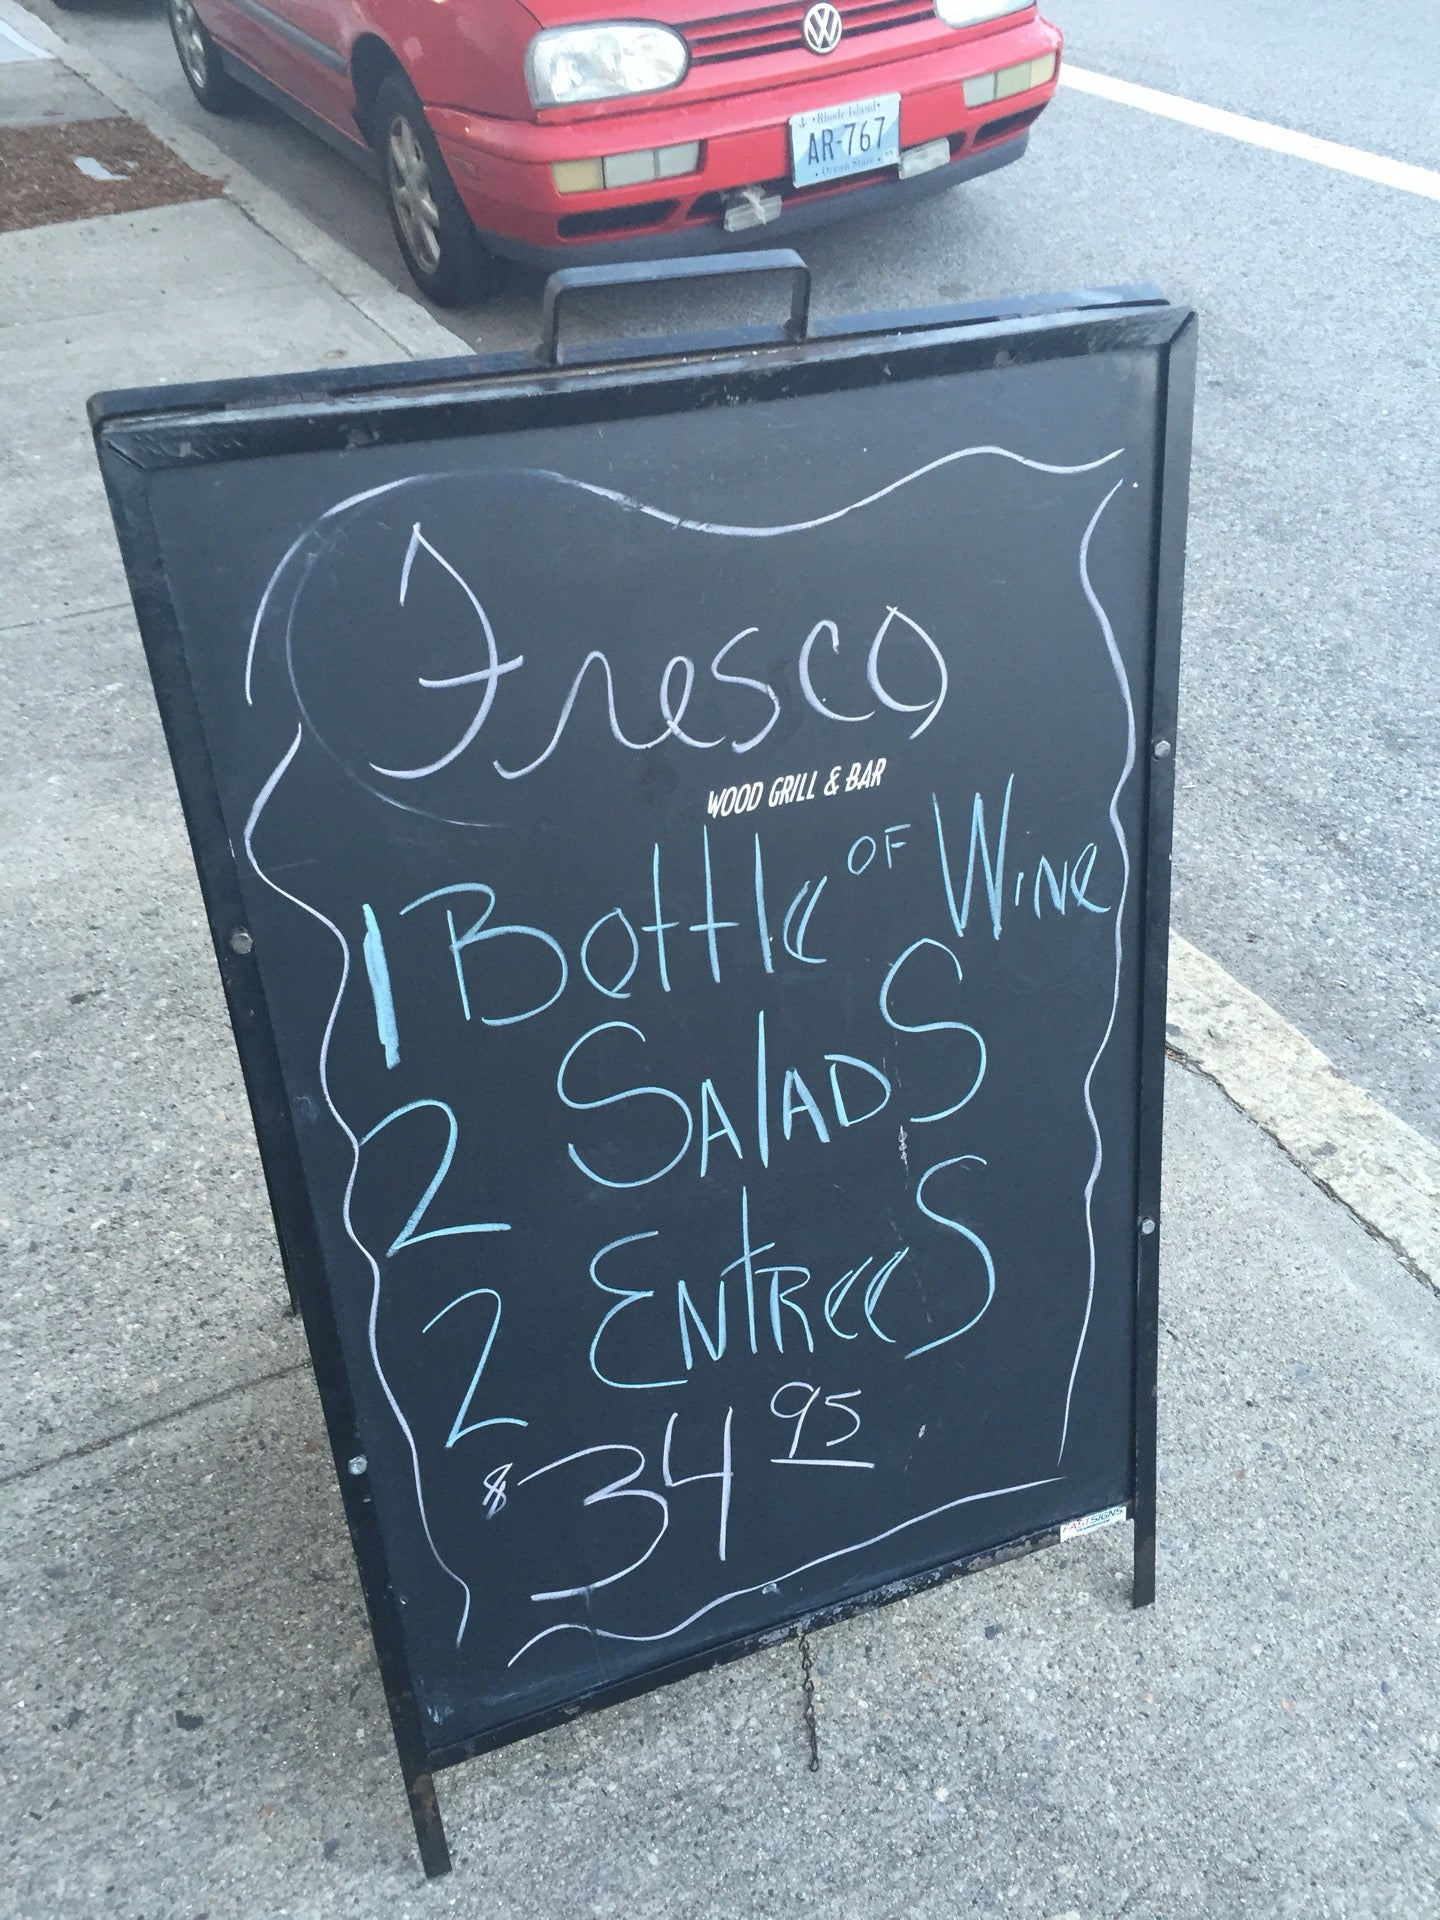 Rhode Island
AR-767
Ocean State
Fresco
WOOD GRILL & BAR
1 Bottle OF WiNe
2 SALADS
2 ENTReeS
$34 95
FASTSIGNS